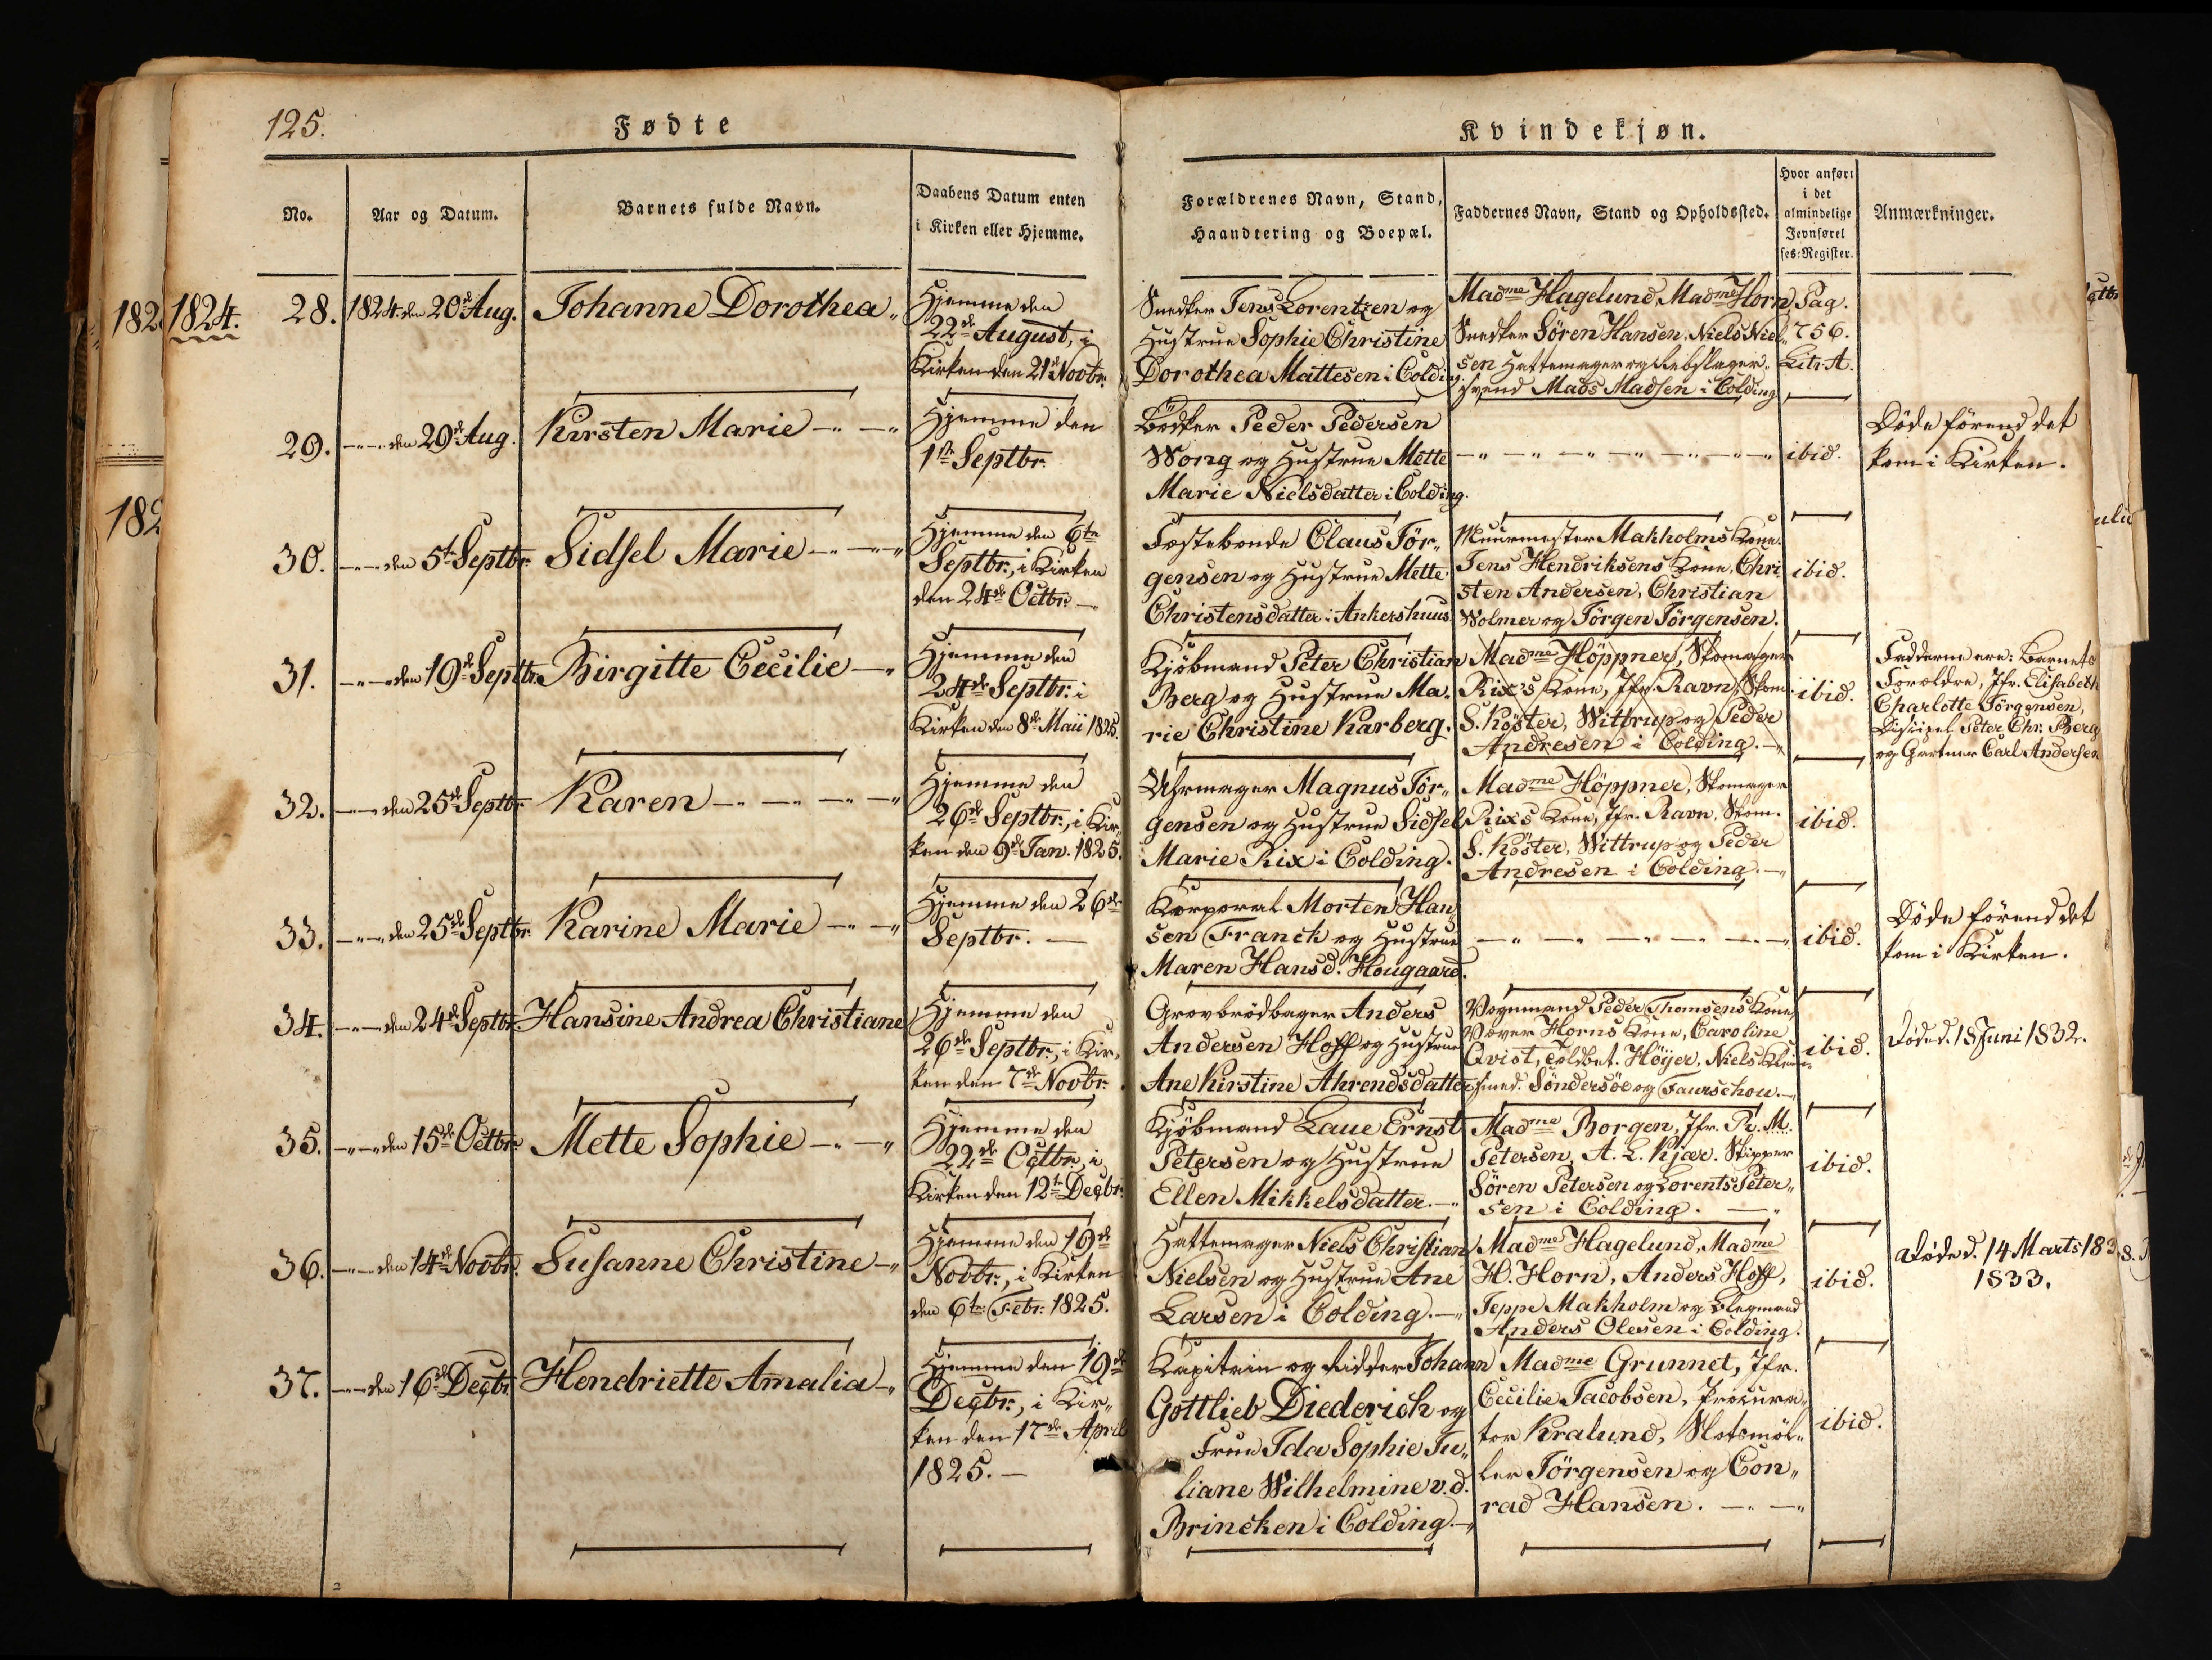 125.
Fødte
Kvindekjøn.
No.
Aar og Datum.
Barnets fulde Navn.
Daabens Datum enten
i Kirken eller Hjemme.
Forældrenes Navn, Stand,
Haandtering og Boepæl.
Faddernes Navn, Stand og Opholdssted.
Hvor anført
i det
almindelige
Jevnførel
ses-Register.
Anmærkninger.
182
1824.
182
28.
1824. den 20de Aug.
Johanne Dorothea
Hjemme den
22de August, i
Kirken den 21de Novbr.
Snedker Jens Lorentzen og
Hustrue Sophie Christine
Dorothea Mattesen i Colding
Madme Hagelund, Madme Horn,
Snedker Sören Hansen, Niels Niel„
sen Hattemager og Rebslager„
svend Mads Madsen i Colding
Pag.
756.
Litr. A.
29.
den 29de Aug.
Kirsten Marie
Hjemme den
1ste Septbr.
Bödker Peder Pedersen
Wong og Hustrue Mette
Marie Nielsdatter i Colding.
ibid.
Döde förend det
kom i Kirken.
30.
den 5te Septbr.
Sidsel Marie
Hjemme den 6te
Septbr., i Kirken
den 24de Octbr.
Fæstebonde Claus Jör„
gensen og Hustrue Mette
Christensdatter i Ankershuus
Muurmester Makholms Kone.
Jens Hendriksens Kone, Chri
sten Andersen, Christian
Wolmer og Jörgen Jörgensen.
ibid.
31.
den 19de Septbr.
Birgitte Cecilie
Hjemme den
24de Septbr. i
Kirken den 8de Maii 1825.
Kjöbmand Peter Christian
Berg og Hustrue Ma„
rie Christine Karberg.
Madme Höppner, Skomager
Rix's Kone, Jfr. Ravn, Skom.
S. Köster, Wittrup og Peder
Andresen i Colding.
ibid.
Fadderne ere: Barnets
Forældre, Jfr. Elisabeth
Charlotte Jörgensen,
Discipel Peter Chr. Berg
og Gartner Carl Andersen
32.
den 25de Septbr.
Karen
Hjemme den
26de Septbr., i Kir„
ken den 9de Jan. 1825.
Uhrmager Magnus Jör„
gensen og Hustrue Sidsel
Marie Rix i Colding.
Madme Höppner, Skomager
Rix's Kone, Jfr. Ravn, Skom.
S. Köster, Wittrup og Peder
Andresen i Colding.
ibid.
33.
den 25de Septbr.
Karine Marie
Hjemme den 26de
Septbr.
Korporal Morten Han
sen Franck og Hustrue
Maren Hansd. Hougaard.
ibid.
Döde förend det
kom i Kirken.
34.
den 24de Septbr.
Hansine Andrea Christiane
Hjemme den
26de Septbr., i Kir„
ken den 7de Novbr.
Grovbrödbager Anders
Andersen Hoff og Hustrue
Ane Kirstine Ahrendsdatter
Vognmand Peder Thomsens Kone,
Væver Horns Kone, Caroline
Qvist, Toldbet. Höijer, Niels Klein
smed. Söndersöe og Faurschou.
ibid.
Döde d. 18 Juni 1832.
35.
den 15de Octbr.
Mette Sophie
Hjemme den
22de Octbr., i
Kirken den 12te Decbr.
Kjöbmand Laue Ernst
Petersen og Hustrue
Ellen Mikkelsdatter.
Madme Borgen, Jfr. R. M.
Petersen, A. L. Kjær. Skipper
Sören Petersen og Lorents Peter„
sen i Colding.
ibid.
36.
den 14de Novbr.
Susanne Christine
Hjemme den 19de
Novbr., i Kirken
den 6te Febr. 1825.
Hattemager Niels Christian
Nielsen og Hustrue Ane
Larsen i Colding.
Madme Hagelund, Madme
H. Horn, Anders Hoff,
Jeppe Makholm og
Anders Olesen i Colding.
ibid.
Döde d. 14 Marts 183
1833.
37.
den 16de Decbr.
Hendriette Amalia
Hjemme den 19de
Decbr., i Kir„
ken den 17de April
1825.
Kapitain og Ridder Johann
Gottlieb Diederich og
Frue Ida Sophie Ju„
liane Wilhelmine v. d.
Brincken i Colding.
Madme Grunnet, Jfr.
Cecilie Jacobsen, Procura„
tor Kralund, Slotsmöl„
ler Jörgensen og Con„
rad Hansen.
ibid.